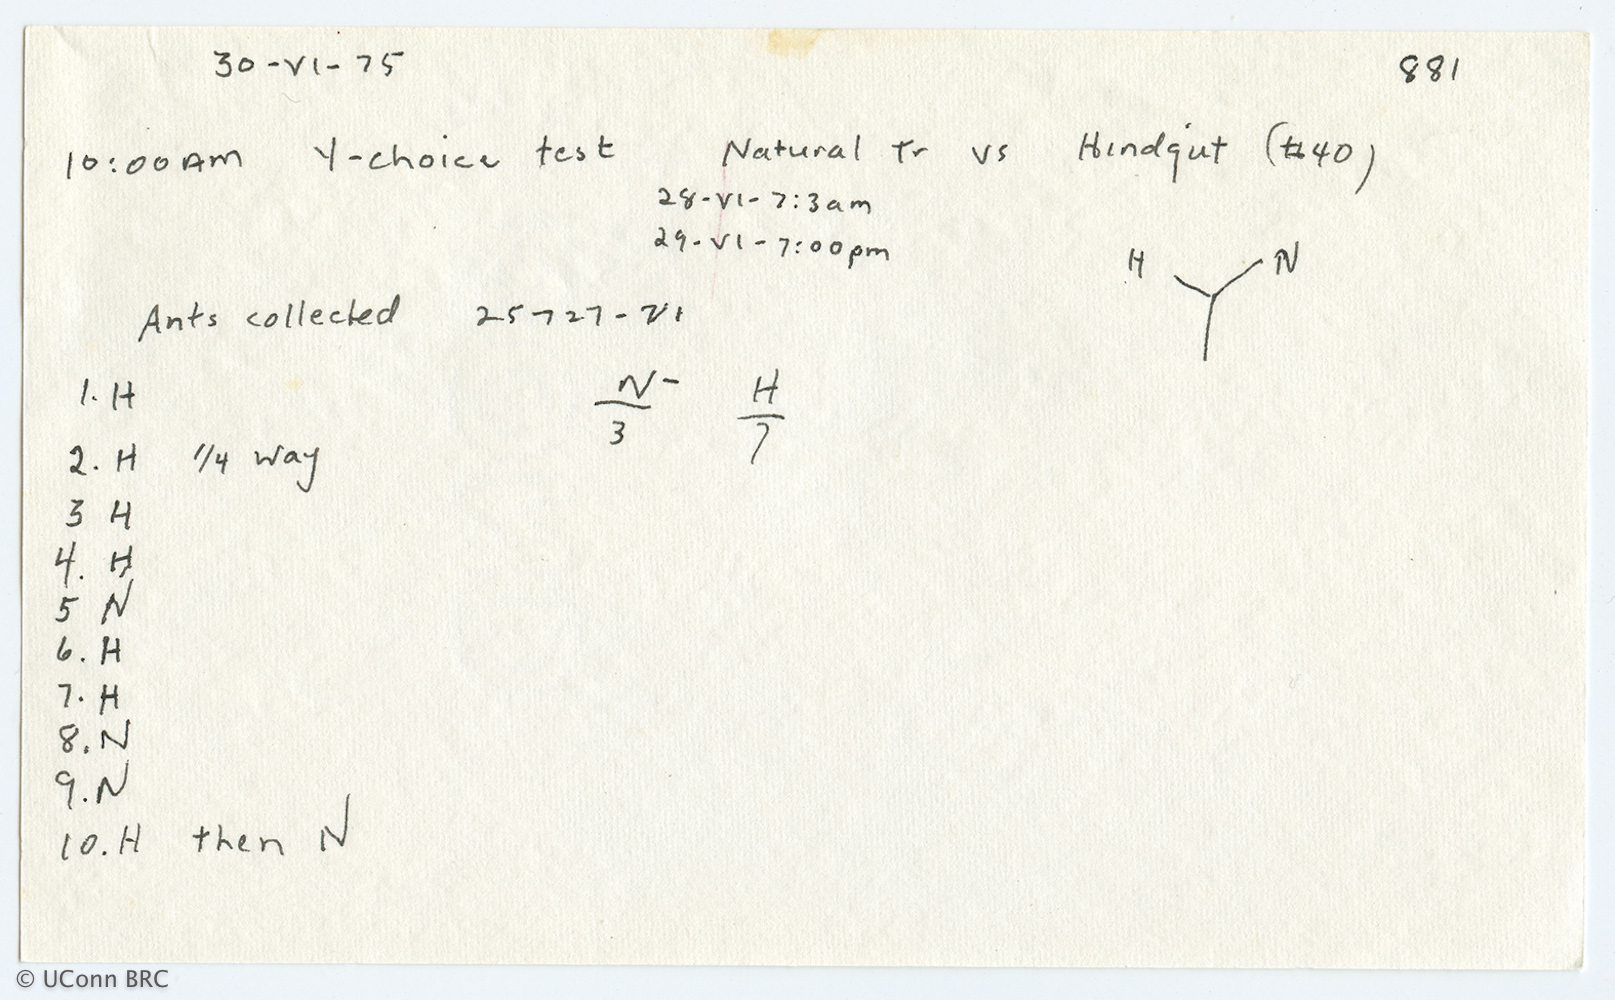 30-VI-75 881
10:00AM Y-choice test Natural Tr vs Hindgut (#40)
28-VI-7:3am
29-VI-7:00pm
H N
Ants collected 25-27-VI
N- H
3 7
1. H
2. H 1/4 way
3 H
4. H
5 N
6. H
7. H
8. N
9. N
10. H then N
© UConn BRC